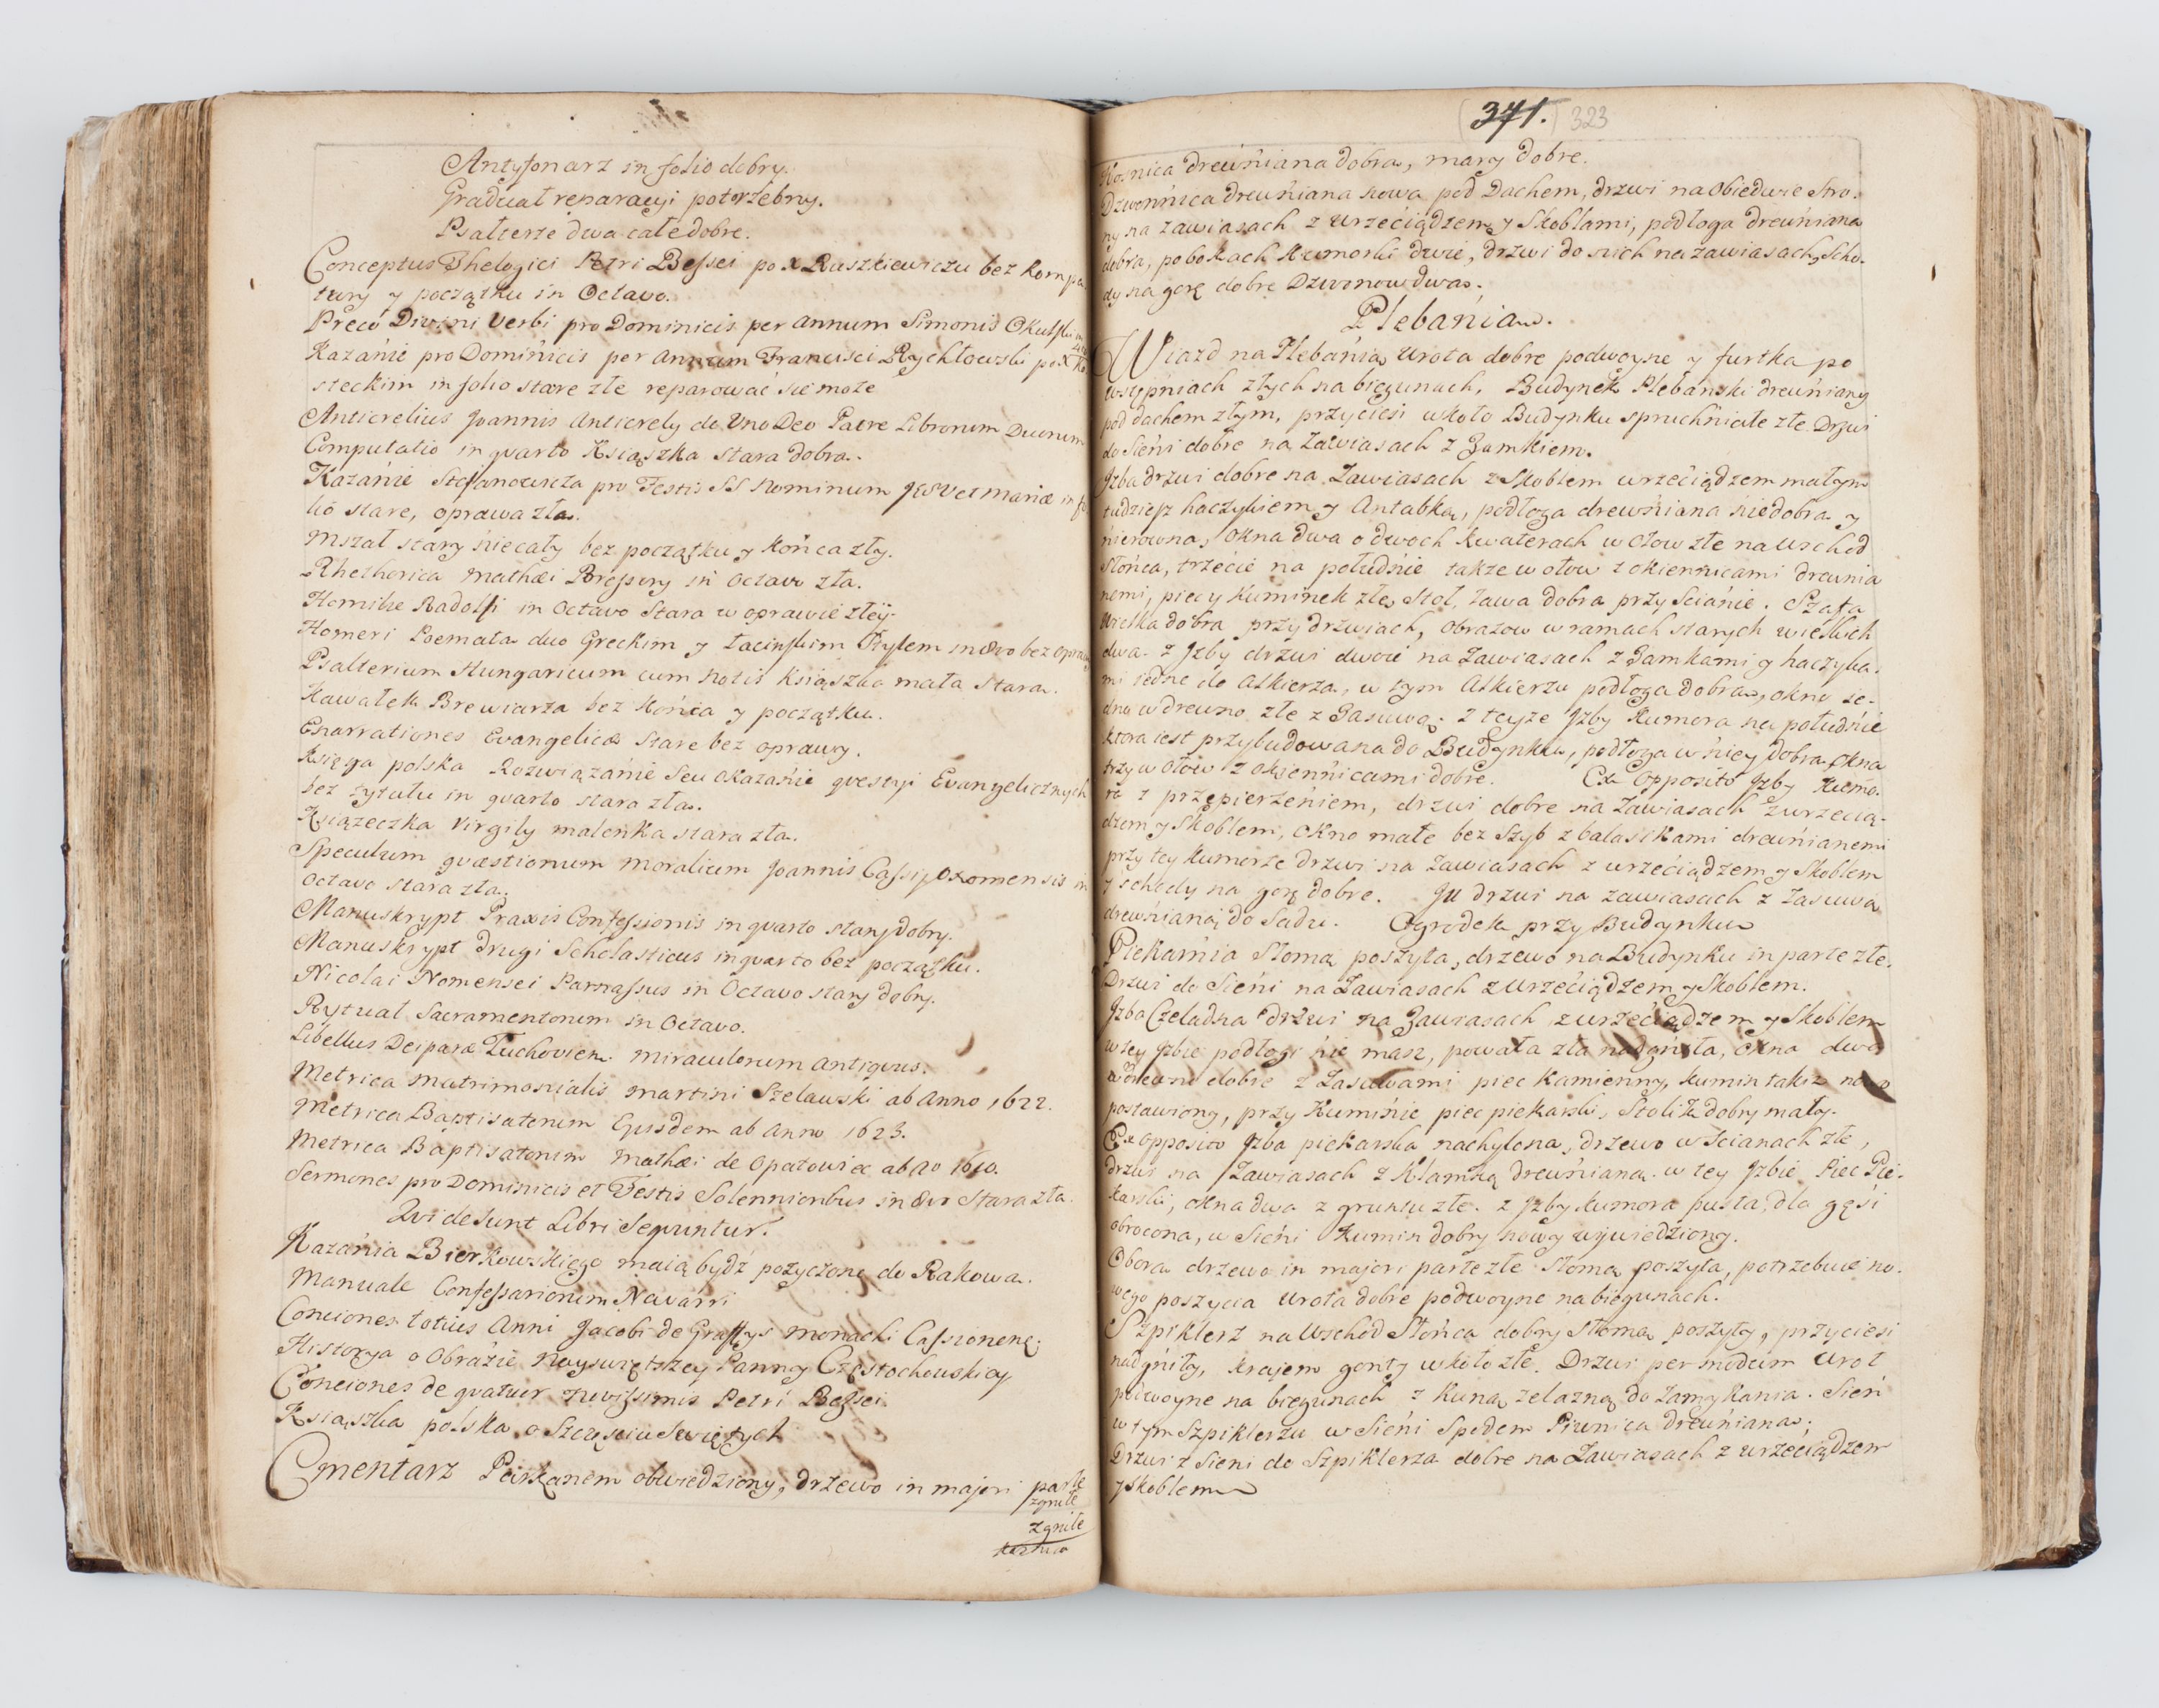 Antyfonarz in folio dobry.
Graduał reparacyi potrzebny.
Psałterze dwa całe dobre.
Conceptus Thelogici Petri Bessei po X Ruszkiewiczu bez kompa
tury y początku in Octavo.
Preco Divini Verbi pro Dominicis per annum Simonis Okulski
Kazańie pro Dominicis per Annum Francisci Rychłowski po X Ko
steckim in folio stare złe reparować się może
Anticrelius Joannis Anticrely de Uno Deo Patre Librorum Duorum
Computatio in qvarto Ksiąszka stara dobra.
Kazańie Stefanowicza pro Festis SS Nominum Jesu et Mariæ in fo
lió stare, oprawa zła.
Mszał stary niecały bez początku y końca zły.
Rhethorica Mathæi in Octavo zła.
Homiliæ Radolfi in Octavo Stara w oprawie złey.
Homeri Poemata duo Greckim y łacinskim Stylem in 8vo bez opra
Psalterium Hungaricum cum notis Książka mała Stara.
Kawałek Brewiarza bez końca y początku.
Enarrationes Evangelicæ Stare bez oprawy.
Księga polska Rozwiązańie Seu okazańie qvestyi Evangelicznych
bez tytułu in qvarto stara zła.
Książeczka Virgily malenka stara zła.
Speculum qvæstionum moralium Joannis Cassij Oxomensis in
Octavo stara zła.
Manuskrypt Praxis Confessionis in qvarto stary dobry.
Manuskrypt drugi Scholasticus in qvarto bez początku.
Nicolai Nomensei Parnassus in Octavo stary dobry.
Rytuał Sacramentorum in Octavo.
Libellus Deiparæ Tuchovien. miraculorum antiqvus.
Metrica Matrimonialis Martini Szelawski ab Anno 1622.
Metrica Baptisatorum Ejusdem ab Anno 1623.
Metrica Baptisatorum Mathæi de Opatowiec ab Ao 1610.
Sermones pro Dominicis et Festis Solennioribus in 8vo Stara zła.
Qvi desunt Libri Seqvuntur.
Kazańia Bierkowskiego maią bydź pożyczone do Rakowa.
Manuale Confessariorum Navarri
Conciones totius Anni Jacobi de Graffys monachi Cassinens;
Historya o Obraźie Nayswiętszey Panny Częstochowskiey
Conciones de qvatuor novissimis Petri Bessei
Ksiąszka polska o Szczęściu Swiętych
Cmentarz Parkanem obwiedziony, drzewo in majori parte
zgniłe
zgniłe
371. 323
Kosnica drewńiana dobra, mary dobre.
Dzwonńica drewńiana nowa pod Dachem, drzwi na obiedwie Stro-
ny na zawiasach z wrzeciądzem y Skoblami, podłoga drewńiana
dobra, po bokach kumorki dwie, drzwi do nich na zawiasach, Scho-
dy na gorę dobre Dzwonow dwa.
Plebańia.
Wiazd na Plebańią wrota dobre podwoyne y furtka po
wstępniach złych na biegunach, Budynek Plebanski drewńiany
pod dachem złym, przyciesi w koło Budynku spruchńiałe złe Drzwi
do Sieńi dobre na Zawiasach z Zamkiem.
Izba drzwi dobre na Zawiasach z Skoblem wrzeciądzem małym
tudziesz haczykiem y Antabką, podłoga drewńiana ńiedobra y
ńierowna, okna dwa o dwoch kwaterach w ołow złe na wschod
słońca, trzecie na południe także w ołow z okiennicami drewnia
nemi, piec y kuminek złe, stoł, ława dobra przy Scianie. Szafa
wielka dobra przy drzwiach, obrazow w ramach starych wielkich
dwa. z Izby drzwi dwoie na Zawiasach z Zamkami y haczyka-
mi iedne do Alkierza, w tym Alkierzu podłoga dobra, okno ie-
dno w drewno złe z Zasuwą. z teyże Izby kumora na południe
ktora iest przybudowana do Budynku, podłoga w niey dobra, okna
trzy w ołow z okiennicami dobre. Ex opposito Izby Kumo-
ra z przępierzeniem, drzwi dobre na zawiasach z wrzecią-
dzem y Skoblem, okno małe bez Szyb z balasikami drewnianemi
przy tey kumorze drzwi na zawiasach z wrzeciądzem y Skoblem
y schody na gorę dobre. Ju drzwi na zawiasach z Zasuwą
drewńianą do Sadu. Ogrodek przy Budynku
Piekarńia Słomą poszyta, drzewo na Budynku in parte złe.
Drzwi do Sieńi na Zawiasach z wrzeciądzem y Skoblem.
Izba Czeladna drzwi na Zawiasach z wrzeciądzem y Skoblem
w tey Izbie podłogi ńie masz, powała zła nadgniła, okna dwa
w drewno dobre z Zasuwami piec kamienny, kumin takiż nowo
postawiony, przy Kumińie piec piekarski, Stolik dobry mały.
Ex opposito Izba piekarska nachylona, drzewo w scianach złe,
drzwi na Zawiasach z Klamką drewńianą. w tey Izbie Piec Pie-
karski, okna dwa z gruntu złe. z Izby kumora pusta, dla gęsi
obrocona, w Sieńi Kumin dobry nowy wywiedźiony.
Obora drzewo in majori parte złe Słomą poszyta, potrzebuie no-
wego poszycia wrota dobre podwoyne na biegunach.
Szpiklerz na wschod Słońca dobry Słomą poszyty, przyciesi
nadgniły, krajem gonty w koło złe. Drzwi per modum wrot
podwoyne na biegunach z kuną żelazną do zamykania. Sień
w tym Szpiklerzu w Sieńi Spodem Piwnica drewńiana;
Drzwi z Sieni do Szpiklerza dobre na Zawiasach z wrzeciądzem
y Skoblem